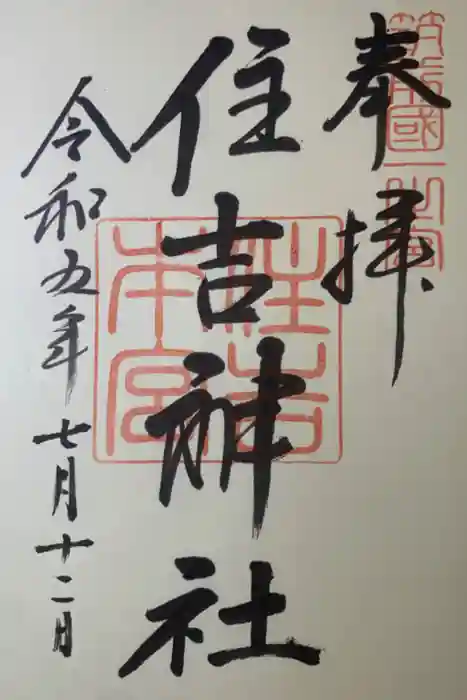 奉拝
筑前國一之宮
住吉神社
住吉本宮
令和五年七月十二日